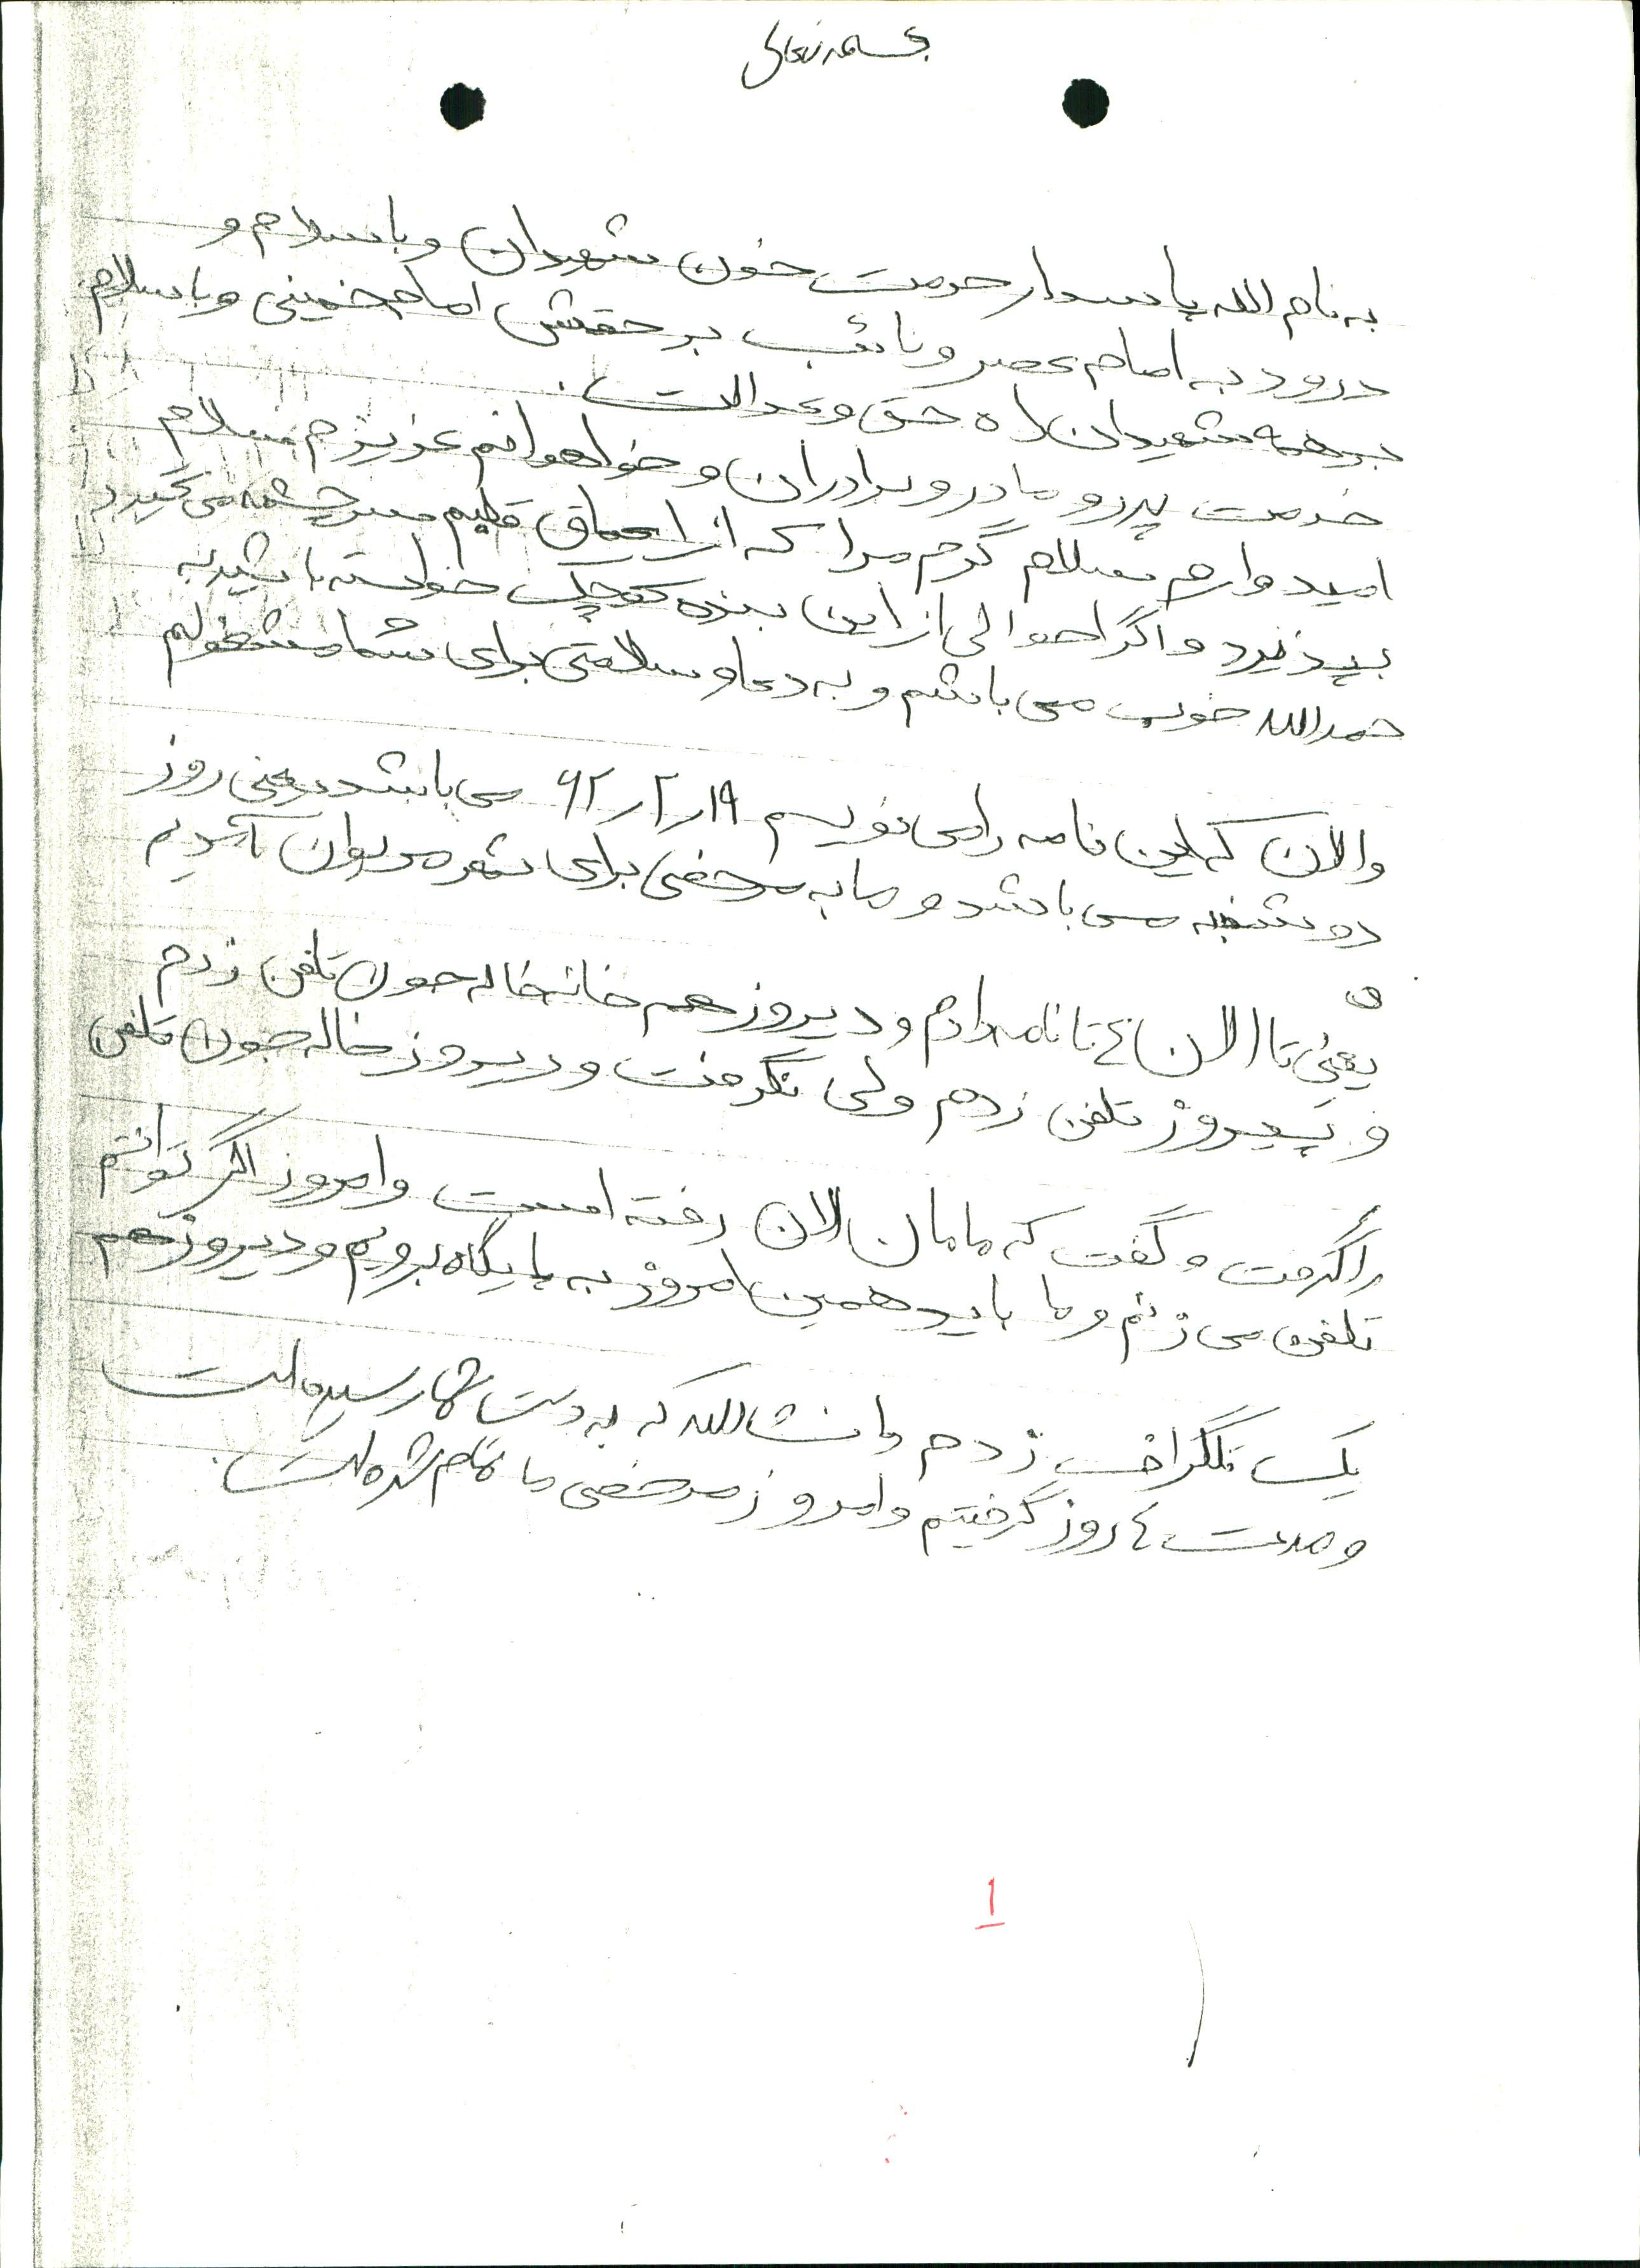 بسمه تعالی
به نام الله پاسدار حرمت خون شهیدان و با سلام و
درود به امام عصر و نائب بر حقش امام خمینی و با سلام
بر همه شهیدان راه حق و عدالت.
خدمت پدر و مادر و برادران و خواهرانم عزیزم سلام
امیدوارم سلام گرم مرا که از اعماق قلبم سرچشمه می گیرد
بپذیرد و اگر احوالی از این بنده کوچک خواسته باشید به
حمدالله خوب می باشم و به دعا و سلامتی برای شما مشغولم
والان که این نامه را می نویسم ۱۹ر۲ر۶۲ می باشد یعنی روز
دوشنبه می باشد و ما به مرخصی برای شهر مریوان آمدیم
یعنی تا الان ۴ تا نامه دادم و دیروز هم خانه خاله جون تلفن زدم
و پریروز تلفن زدم ولی نگرفت و دیروز خاله جون تلفن
را گرفت و گفت که مامان الان رفته است و امروز اگر توانستم
تلفن می زنم و ما باید همین امروز به پایگاه برویم و دیروز هم
یک تلگراف زدم و انشاالله که به دست شما رسیده است
و مدت ۴ روز گرفتیم و امروز مرخصی ما تمام شده است.
۱